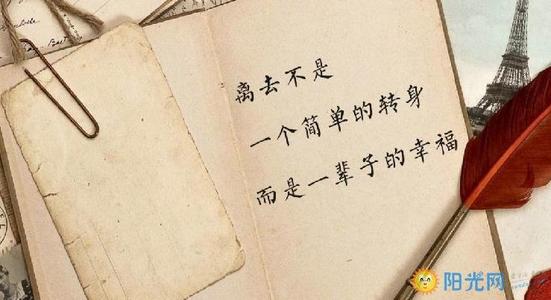 离去不是
一个简单的转身
而是一辈子的幸福
阳光网